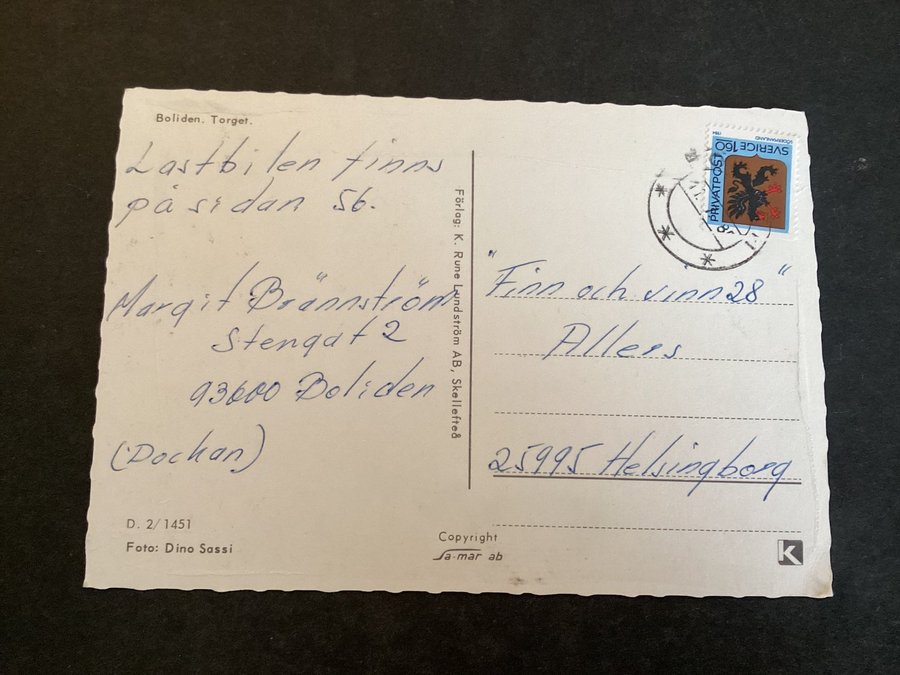 Boliden. Torget.
Lastbilen finns
på sidan 56.
Margit Brännström
Stengat 2
93600 Boliden
(Dockan)
D. 2/1451
Foto: Dino Sassi
Förlag: K. Rune Lundström AB, Skellefteå
Copyright
Sa-mar ab
SÖDERMANLAND
SVERIGE 160
PRIVATPOST
"Finn och vinn 28"
Allers
25995 Helsingborg
K